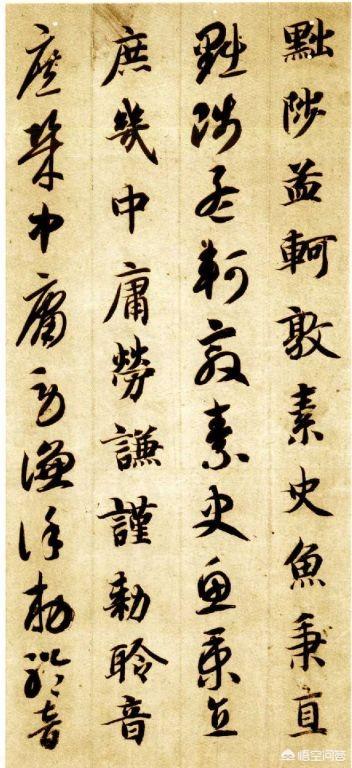 黜陟孟軻敦素史魚秉直
黜陟孟軻敦素史魚秉直
庶幾中庸勞謙謹勅聆音
庶幾中庸勞謙謹勅聆音
悟空问答